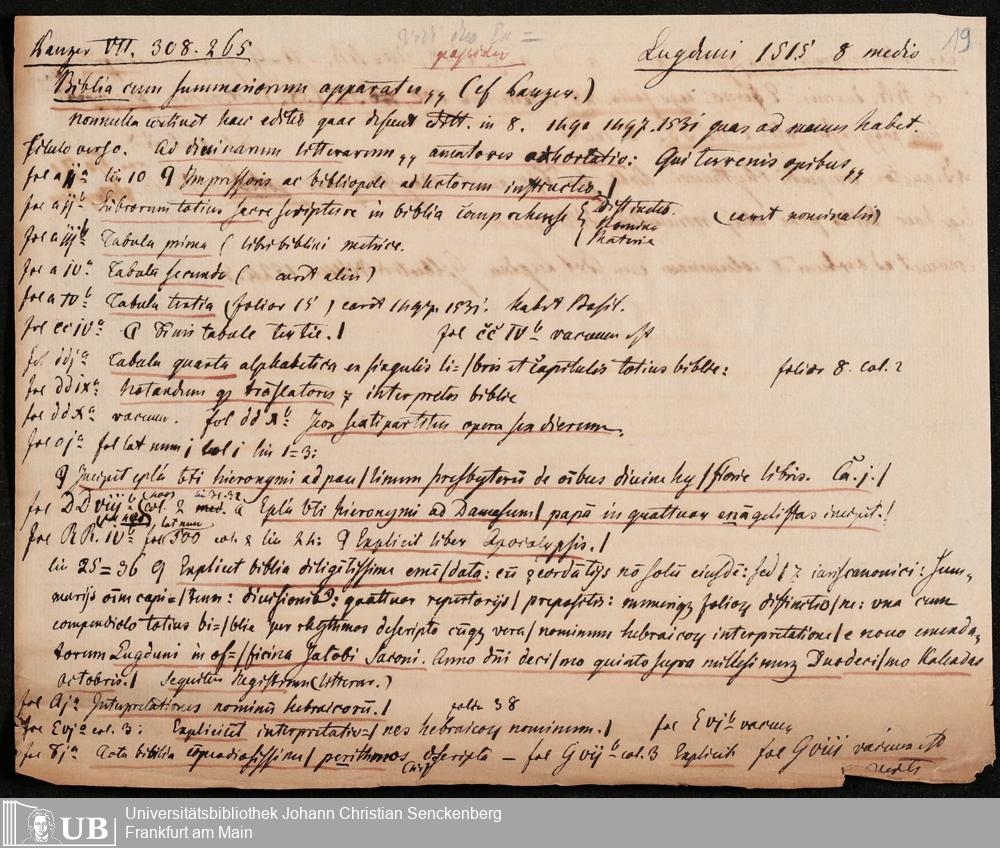 Panzer VII. 308. 265
19
Lugduni 1515 8 medio
Biblia cum summariorum apparatu,, (cf Panzer.)
Nonnulla continet haec editio quae desunt editt. in 8. 1490 1497. 1531 quas ad manus habet.
Titulo verso. Ad divinarum litterarum,, amatores adhortatio: Qui terrenis opibus,,
fol a ij a lin 10 Impressoris ac bibliopole ad lectorem instructio. |
fol a ij b Librorum totius sacre scripture in biblia comprehense { Distinctio. Nomina Materia (caret nominalis)
fol a iij b Tabula prima (libri biblini metrice.
fol a iv a Tabula secunda (caret aliis)
fol a iv b Tabula tertia (folior 15) caret 1497. 1531. habet Basil.
fol cc iv a Finis tabule tertie. | fol cc IV b vacuum est
Tabula quarta alphabetica ex singulis li= | bris et capitulis totius biblie: folior 8. col. 2
fol dd ix a Notandum translatores et interpretes biblie
fol dd x a vacuum. fol dd x b opera sex dierum.
fol a j a fol lat num j col j lin 1=3:
Incipit epla bti hieronymi ad pau | linum presbyterum de oibus divine hy | storie libris. Ca. j. |
fol DD viij b col. 2 lin 31. 32 Epla bti hieronymi ad Damasum | papam in quattuor evangelistas incipit. |
fol RR. IV b fol 300 col. 2 lin 24: Explicit liber Apocalypsis. |
lin 25=36 Explicit biblia diligentissime emen | data: cum concordantijs non solum eiusdem: sed | et iuris canonici: Sum=
marijs omnium capi= | tum: divisionibus: quattuor repertorijs | prepositis: numerique foliorum distinctio | ne: una cum
compendiolo totius bi= | blie per rhythmos descripto cumque vera | nominum hebraicorum interpretatione | e novo emenda=
torum Lugduni in of= | ficina Jacobi Saconi. Anno dni deci | mo quinto supra millesimum Duodeci | mo Kalendas
octobris. | Sequitur Registrum (litterar.)
fol Aj a Interpretationes nominum hebraicorum. | folior 38
fol Evj a col. 3: Expliciunt interpretatio= | nes hebraicorum nominum. | fol Evj b vacuum
Tota biblia compendiosissime | per rithmos descripta — fol G vij b col. 3 Explicit fol G viij vacuum est